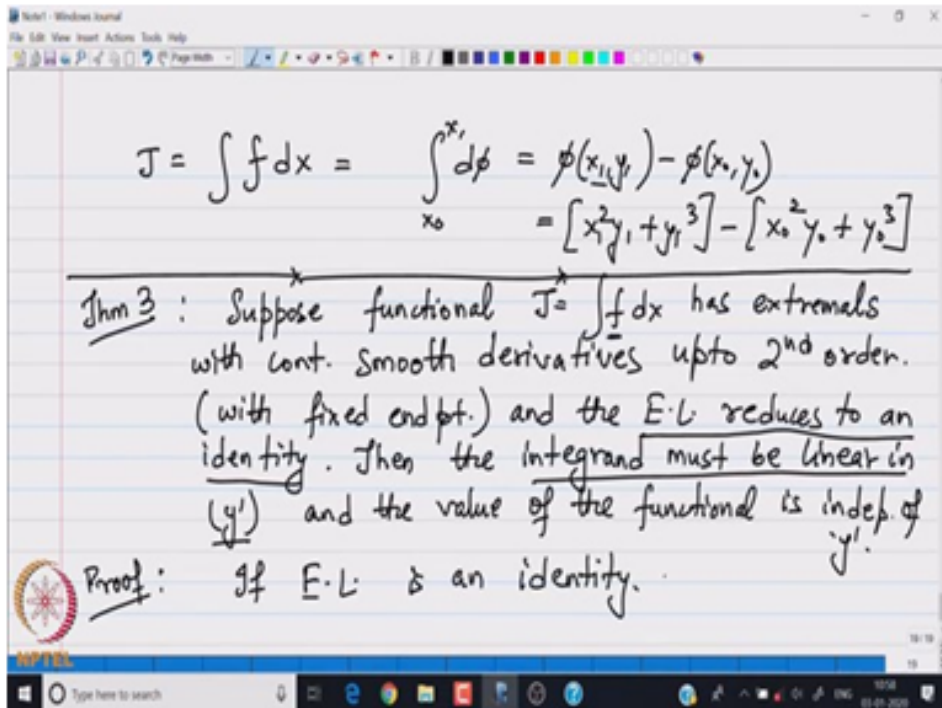 Note1 - Windows Journal
File Edit View Insert Actions Tools Help
Page Width
J = ∫ f dx = ∫_{x₀}^{x₁} dϕ = ϕ(x₁,y₁) - ϕ(x₀,y₀)
= [x₁²y₁ + y₁³] - [x₀²y₀ + y₀³]
Thm 3 : Suppose functional J = ∫ f dx has extremals
with cont. smooth derivatives upto 2nd order.
(with fixed end pt.) and the E.L. reduces to an
identity. Then the integrand must be linear in
(y') and the value of the functional is indep. of
'y'.
Proof : If E.L. is an identity.
NPTEL
19/19
19
Type here to search
ENG
10:58
03-01-2020